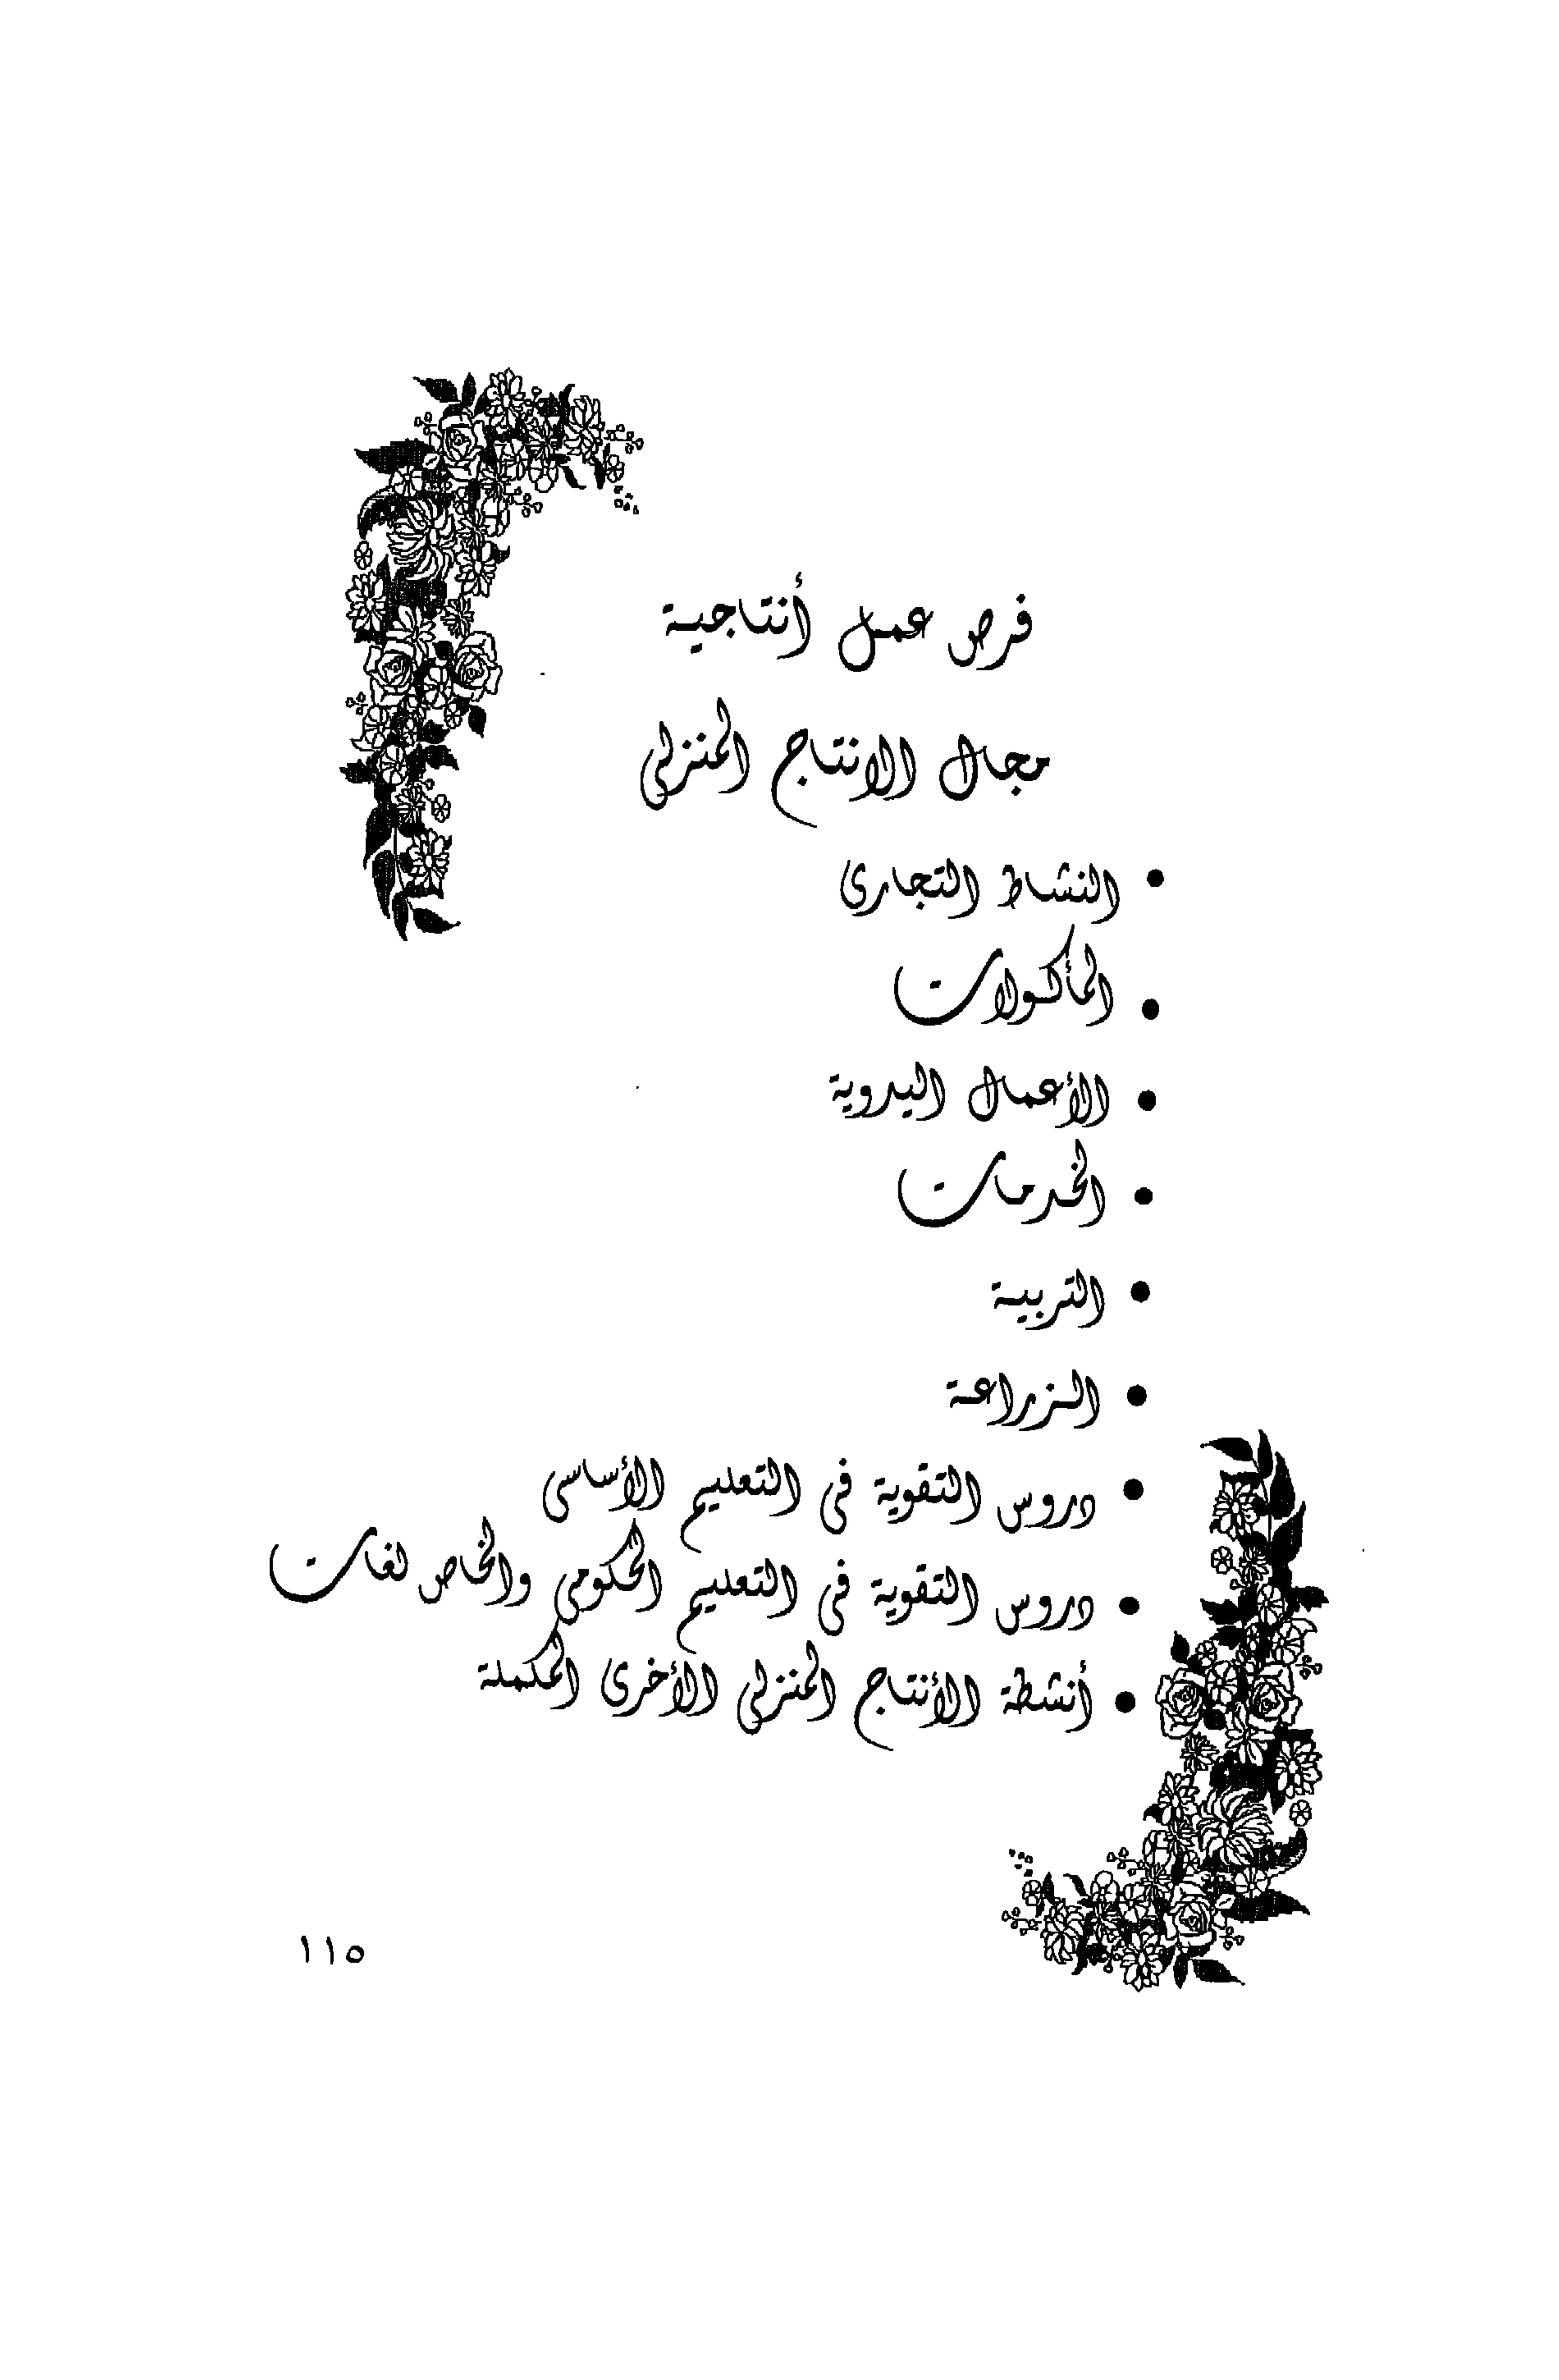 فرص عمل أنتاجية
مجال الانتاج المنزلى
• النشاط التجارى
• المأكولات
• الأعمال اليدوية
• الخدمات
• التربية
• الزراعة
• دروس التقوية فى التعليم الأساسى
• دروس التقوية فى التعليم الحكومى والخاص لغات
• أنشطة الأنتاج المنزلى الأخرى المكملة
١١٥